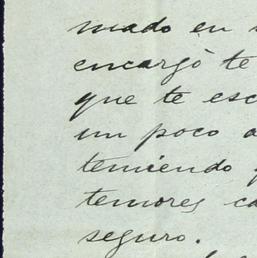 mado en
encargó te
que te esc
un poco a
temiendo
temores co
seguro.